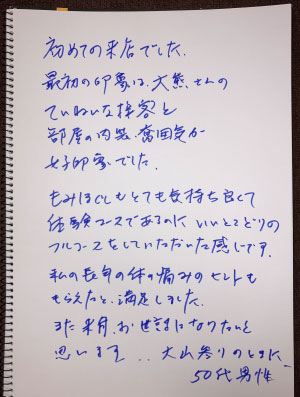 初めての来店でした。
最初の印象は、大熊さんの
ていねいな接客と
部屋の内装、雰囲気が
好印象でした。
もみほぐしもとても気持ち良くて
体験コースであるのに いいとこどりの
フルコースをしていただいた感じです。
私の長年の体の痛みのヒントも
もらえたと、満足しました。
また来月、お世話になりたいと
思います。.. 大山参りのときに
50代男性